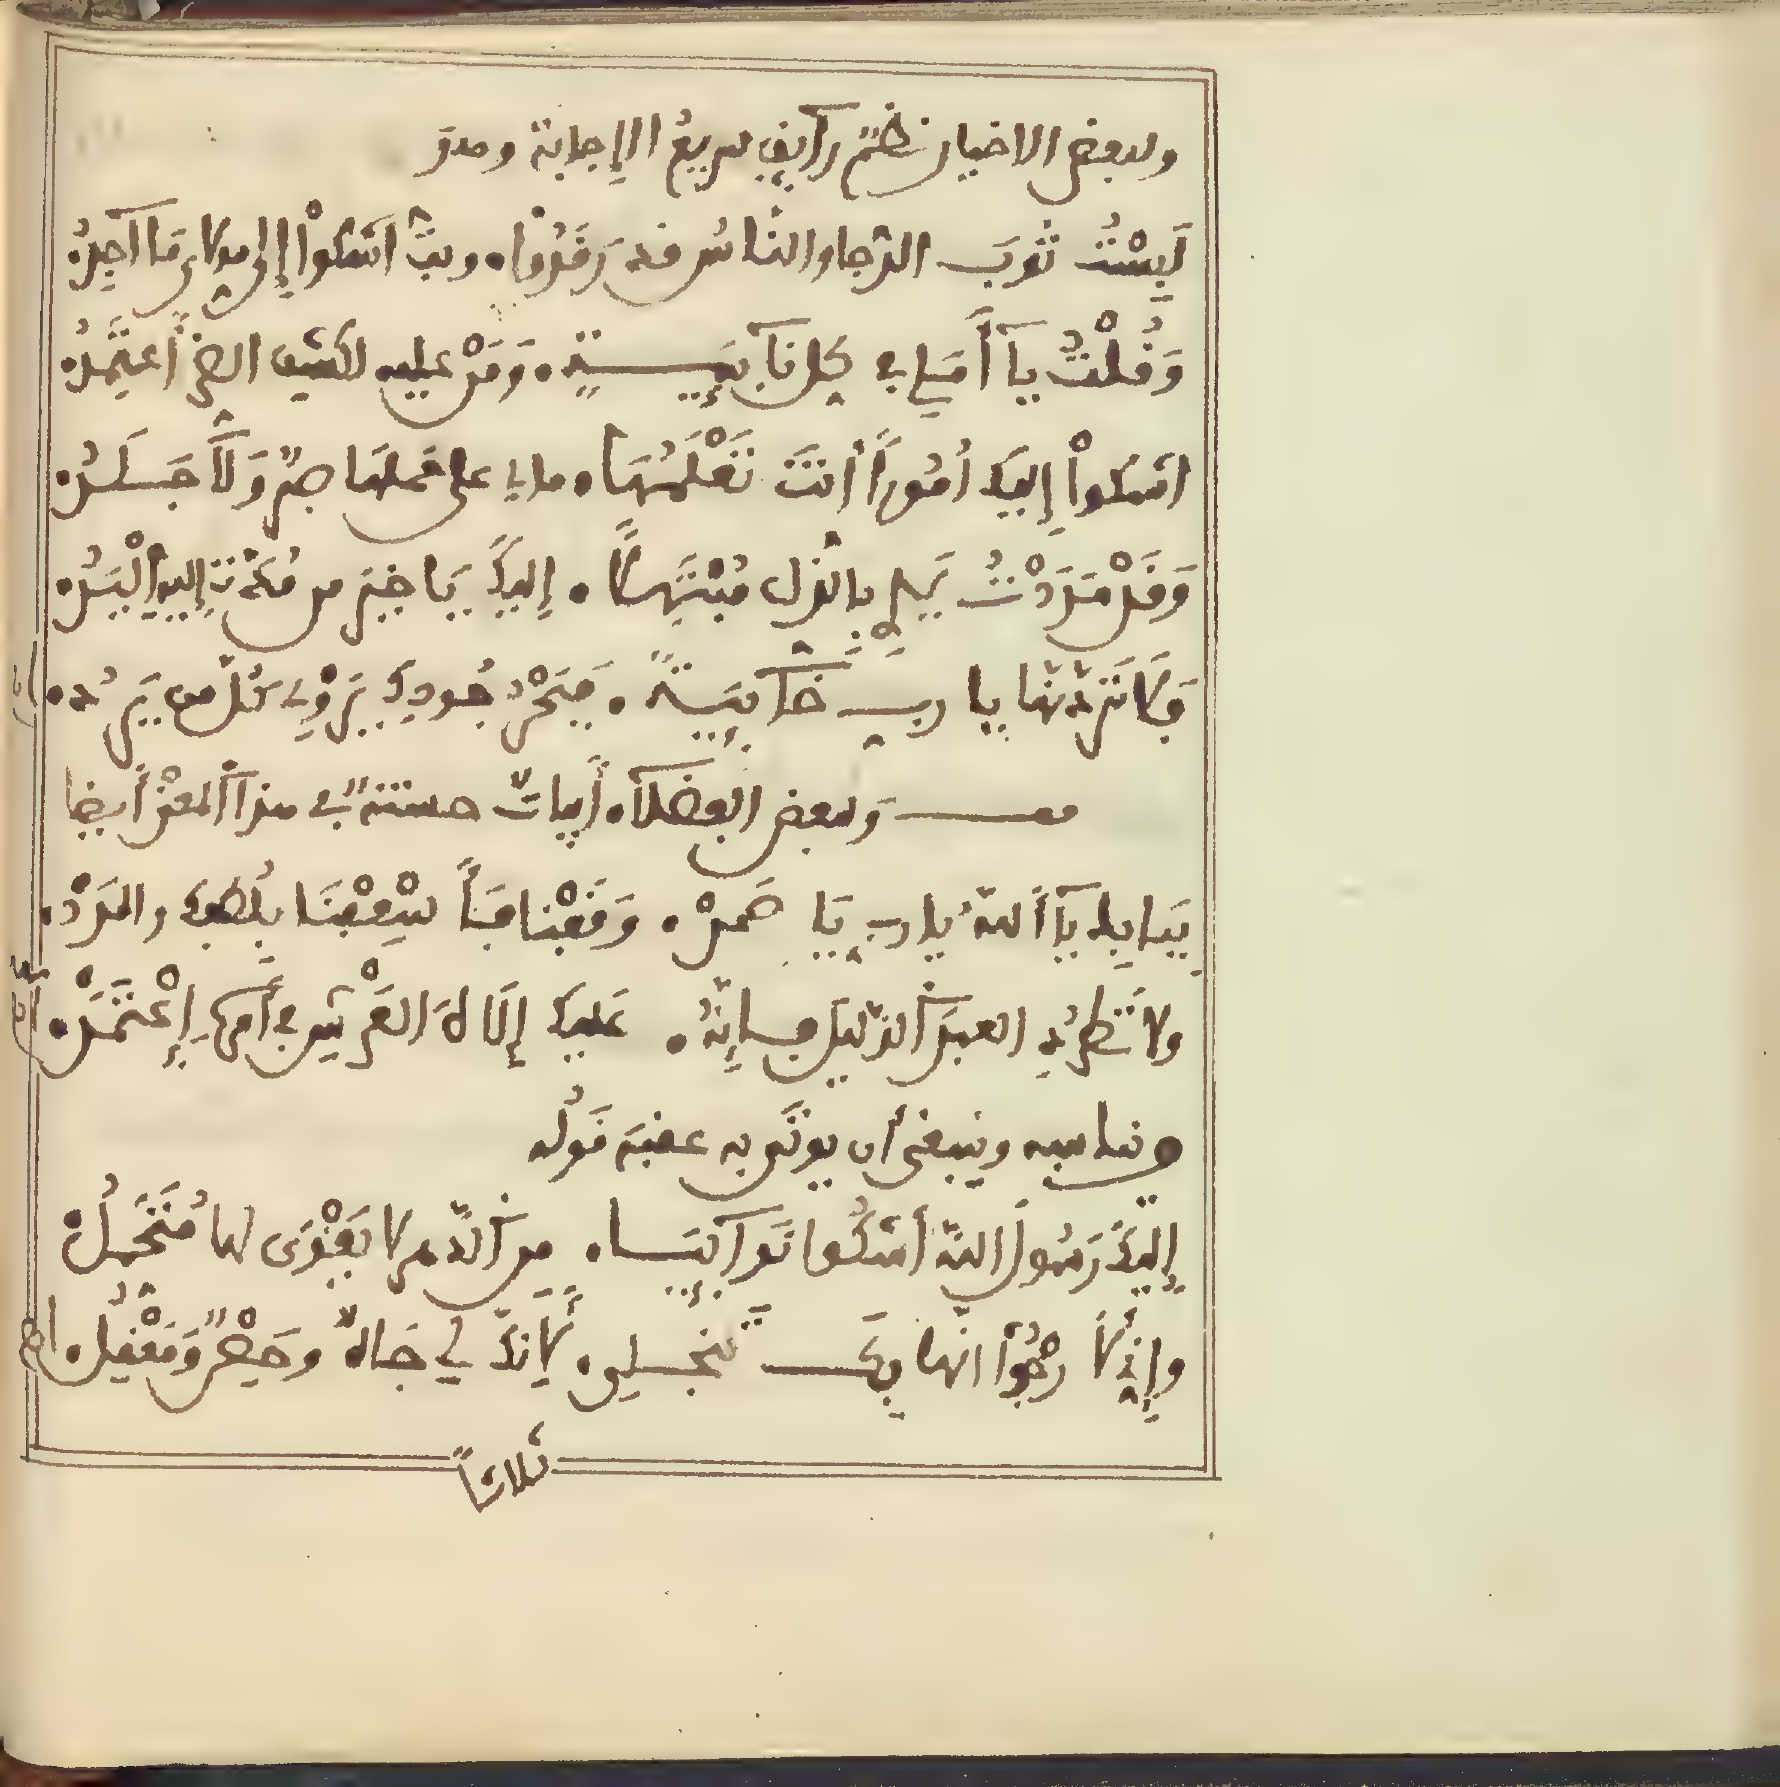 ولبعض الاخيار نظم رآيق سريع الإجابة وهو
لَبِسْتُ ثَوبَ الرّجا والناسُ قد رَقَدُوا۰ وبتّ اشكواْ إلى مولاى مَا آجِدُ۰
وَقُلْتُ يآ أَمَلِي في كل نآيِبَــةٍ۰ وَمَنْ عليه لكشف الضرّ أعتَمِدُ۰
اشكواْ إليكَ أمُوراً أنتَ تَعْلَمُهَا۰ ما لي على حملها صبرٌ وَلاَ جَلَدُ۰
وَقَدْ مَدَدْتُ يَدِي بالذل مُبْتَهِلاً۰ إليكَ يَا خيرَ من مُدَّتْ إليه اليَدُ۰
فَلاَ تَرُدّنّها يا ربــ خَآيِبَـةً۰ فَبَحْرُ جُودِكَ يَرْوِي كُلّ من يَرِدُ۰
ولبعض الفضلآء أبياتٌ حسنة في هذا المعنْى أيضا
يَا يآ اللّهُ يا ربّ يَا صَمَدْ۰ وَفَعْنَا سْعِفْنَا بلُطفكَ والمَدَدْ۰
ولا تَطْرُدِ العبدَ الذّليل فــإنّهُ۰ عَليكَ إلاَهَ العَرْشِ في أمرِهِ إعْتَمَدْ۰
ويناسبه وينبغى أن يوتَى به عقبَه قَولُه
إليكَ رَسُولَ اللّه أشكُوا نَوَآيِبَــا۰ مِنَ الدّهر لا يَقْوَى لها مُتَحَمِلُ۰
وإنِّي لأرجُوْا انّها بِكَــ تنجــلِي۰ لأنَّكَ لِي جَاهٌ وحِصْنٌ وَمَعْقِلُ۰ اهـ
ثلاثاً